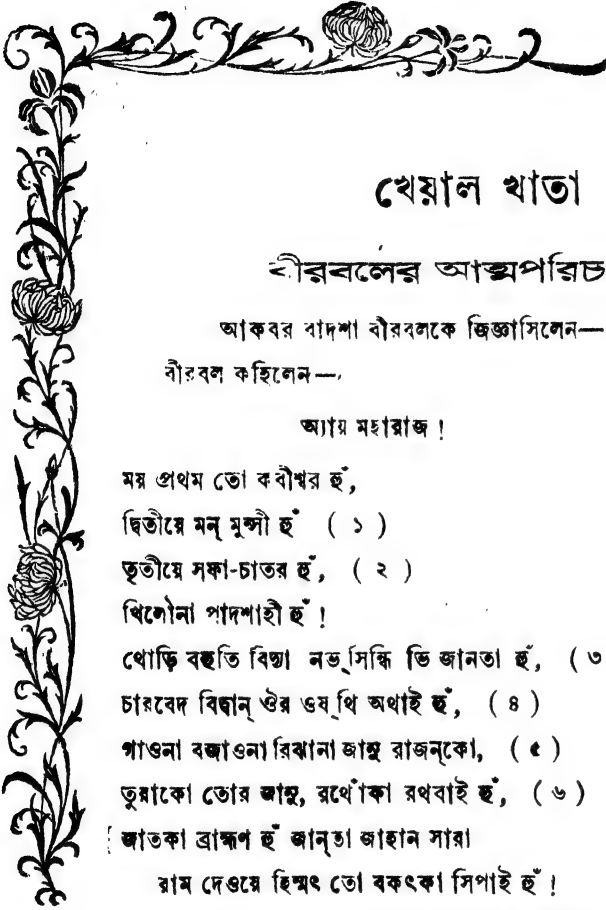 খেয়াল খাতা
বীরবলের আত্মপরিচ
আকবর বাদশা বীরবলকে জিজ্ঞাসিলেন—
বীরবল কহিলেন—
অ্যায় মহারাজ !
ময় প্রথম তো কবীশ্বর হুঁ,
দ্বিতীয়ে মন্ মুন্সী হুঁ ( ১ )
তৃতীয়ে সফা-চাতর হুঁ, ( ২ )
খিলৌনা পাদশাহী হুঁ !
থোড়ি বহুতি বিদ্যা নভ্‌সিন্ধি ভি জানতা হুঁ, ( ৩
চারবেদ বিদ্বান্ ঔর ওষ্‌থি অথাই হুঁ, ( ৪ )
গাওনা বজাওনা রিঝানা জান্থ রাজন্‌কো, ( ৫ )
তুরাকো তোর জান্থ, রথোঁকা রথবাই হুঁ, ( ৬ )
জাতকা ব্রাহ্মণ হুঁ জান্‌তা জাহান সারা
রাম দেওয়ে হিম্মৎ তো বকৎকা সিপাই হুঁ !